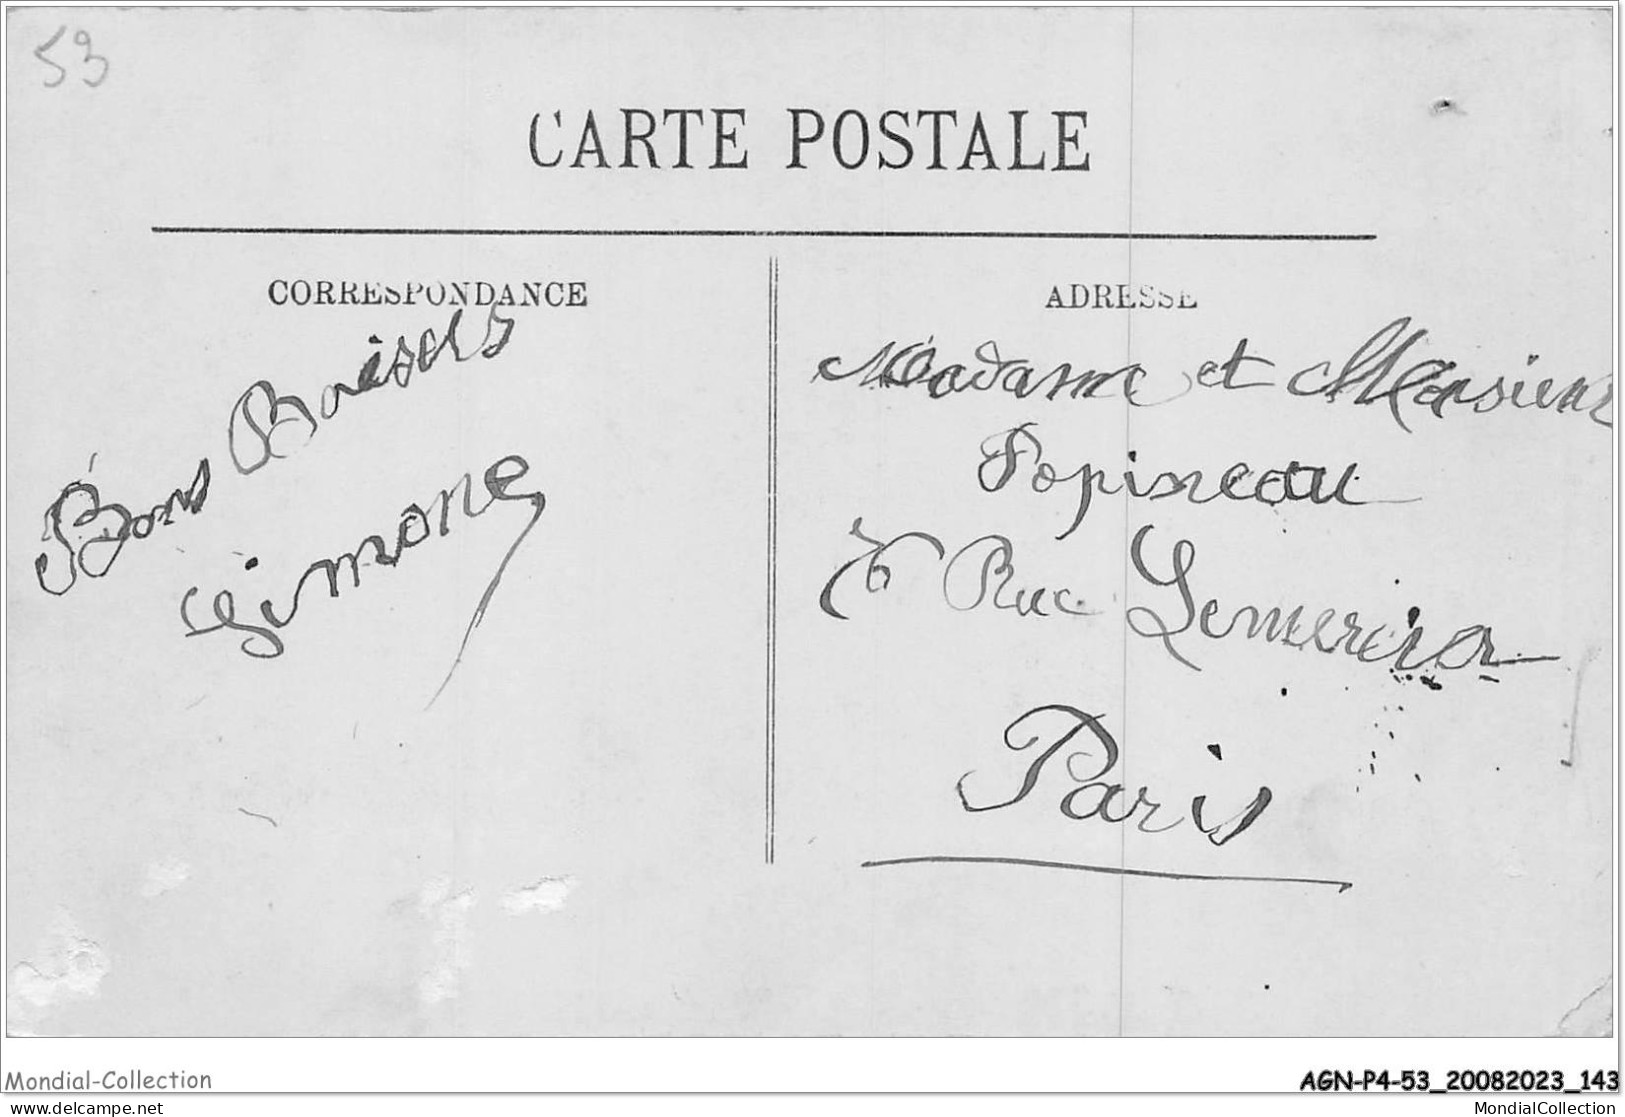 53
CARTE POSTALE
CORRESPONDANCE
Bons Baisers
Simone
ADRESSE
Madame et Monsieur
Popineau
6 Rue Lemercier
Paris
Mondial-Collection
AGN-P4-53_20082023_143
delcampe.net
MondialCollection